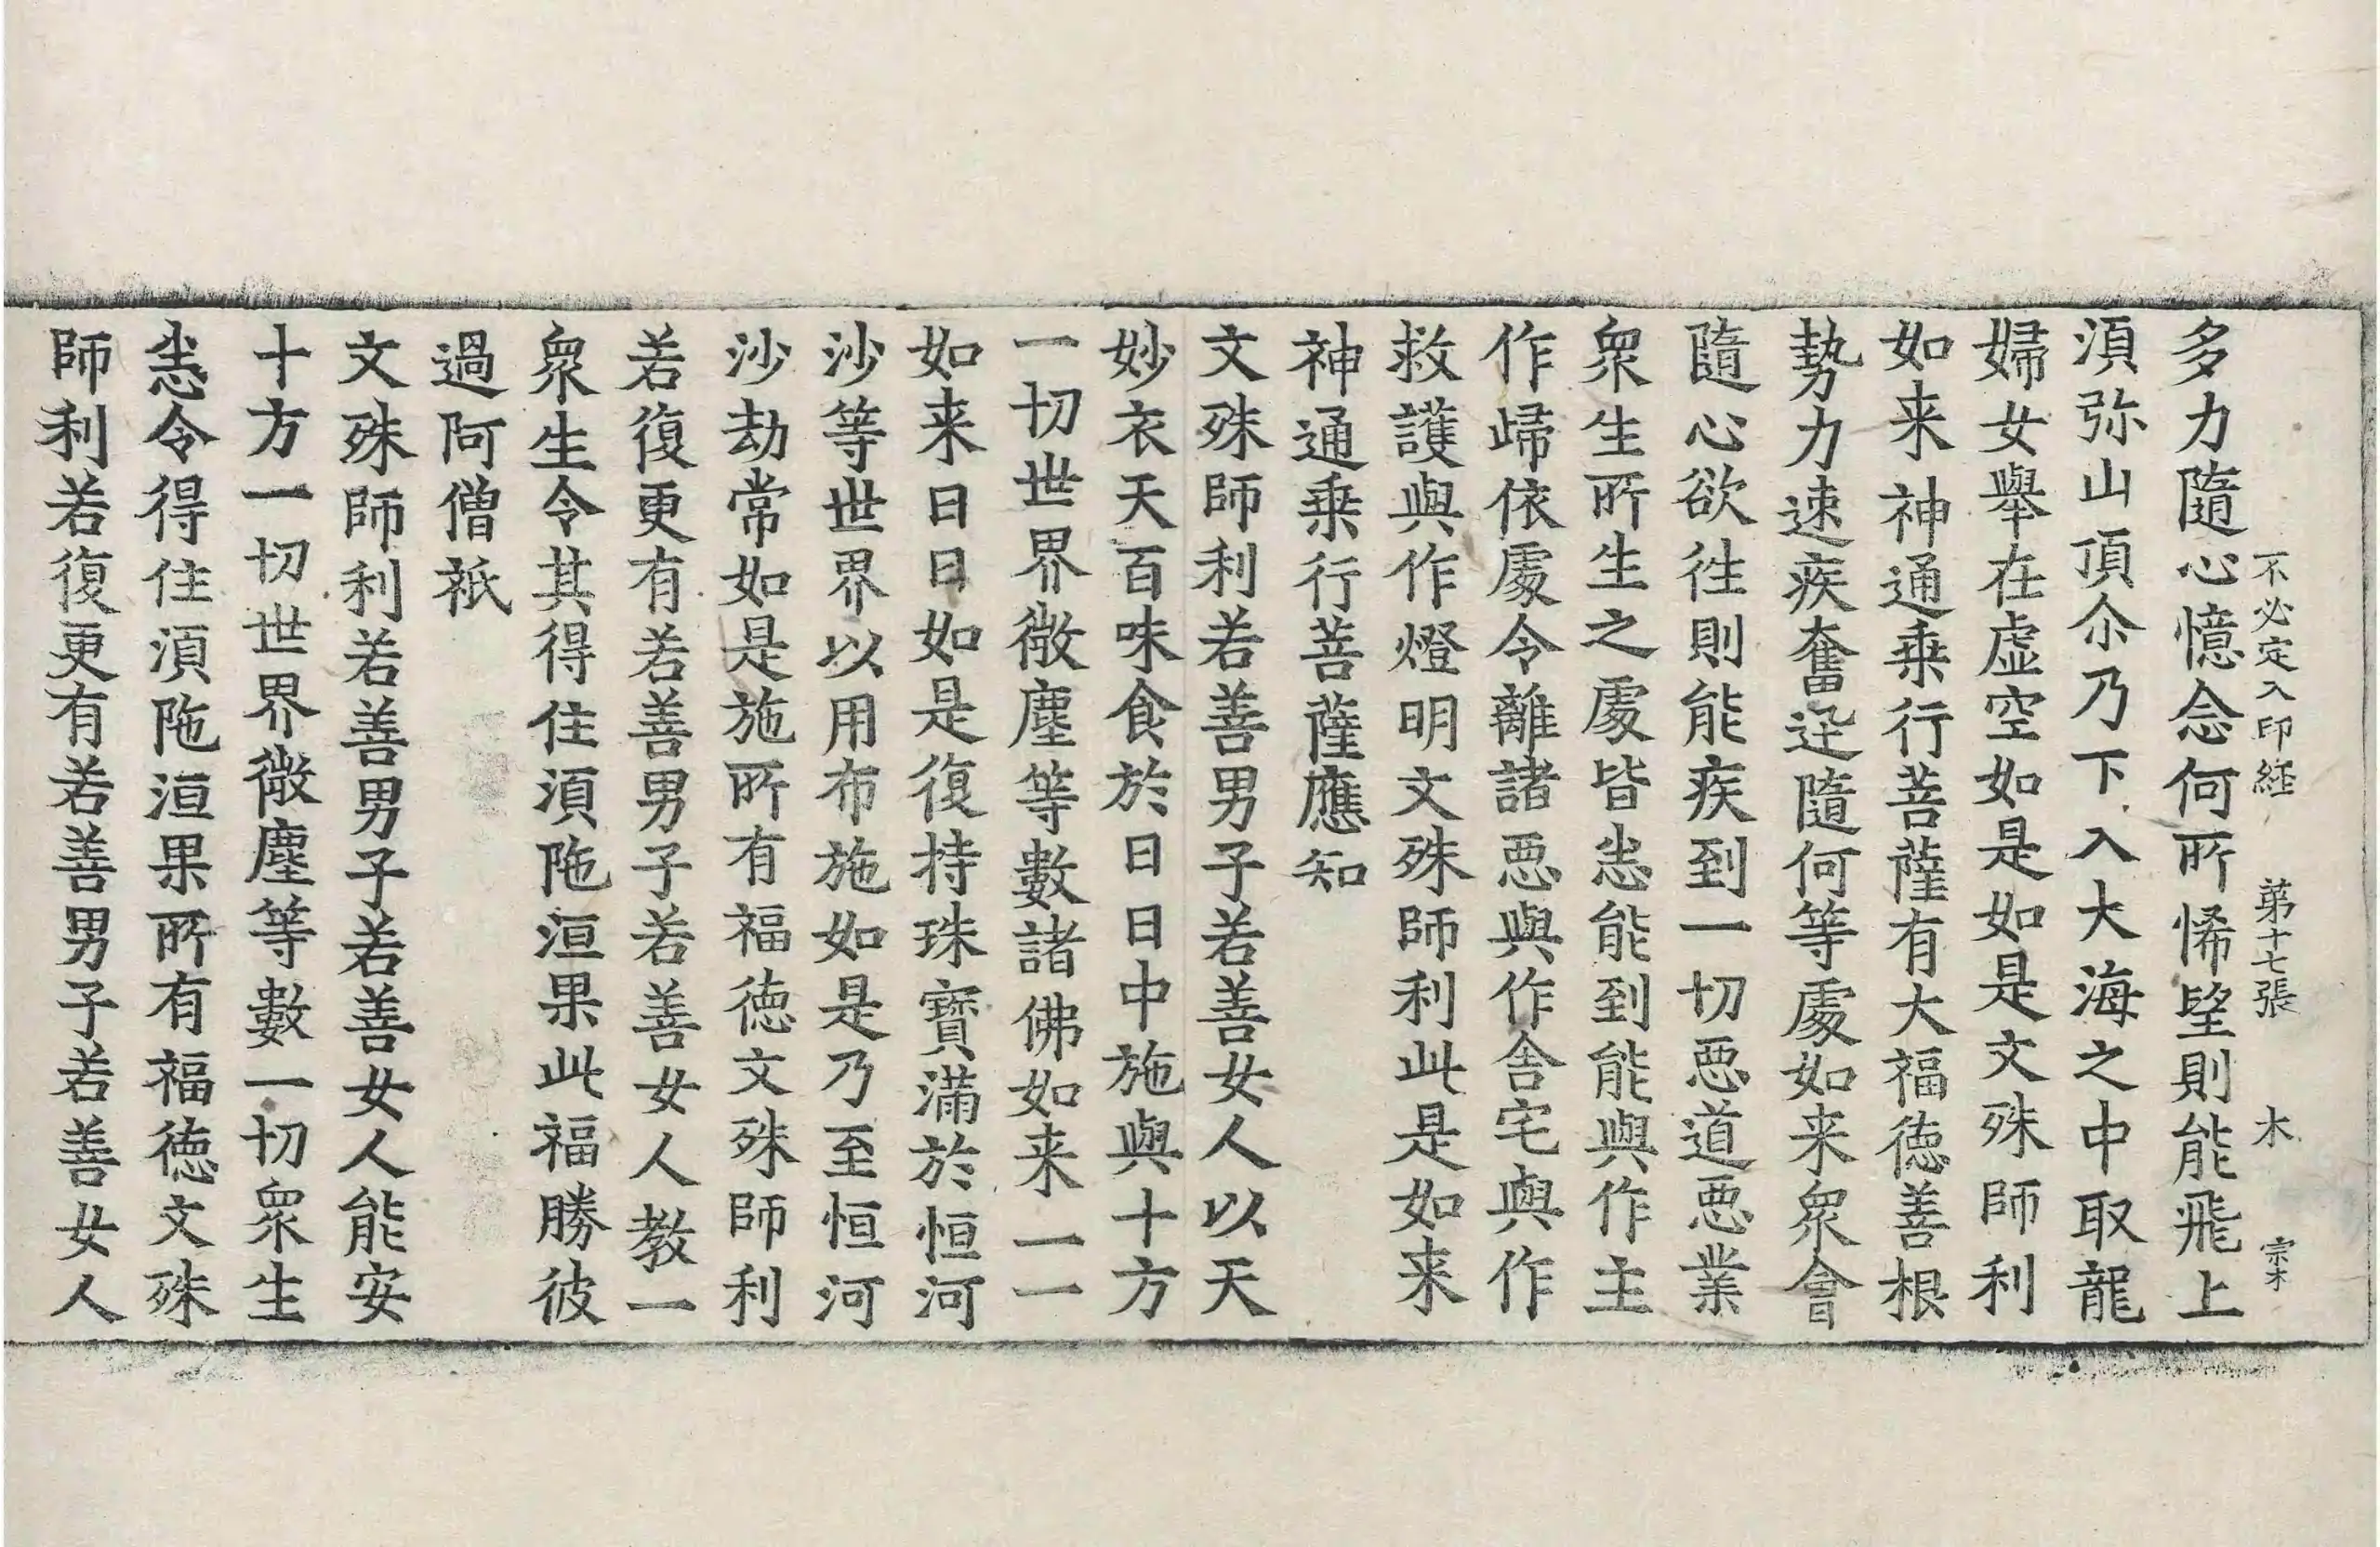 不必定入印経 第十七張 木 宗才
多力隨心憶念何所悕望則能飛上
湏弥山頂尒乃下入大海之中取龍
婦女舉在虚空如是如是文殊師利
如来神通乗行菩薩有大福徳善根
勢力速疾奮迅隨何等處如来衆會
隨心欲徃則能疾到一切惡道惡業
衆生所生之處皆悉能到能與作主
作歸依處令離諸惡與作舎宅與作
救護與作燈明文殊師利此是如来
神通乗行菩薩應知
文殊師利若善男子若善女人以天
妙衣天百味食於日日中施與十方
一切世界微塵等數諸佛如来一一
如来日日如是復持珠寶滿於恒河
沙等世界以用布施如是乃至恒河
沙劫常如是施所有福徳文殊師利
若復更有若善男子若善女人教一
衆生令其得住湏陁洹果此福勝彼
過阿僧祇
文殊師利若善男子若善女人能安
十方一切世界微塵等數一切衆生
悉令得住湏陁洹果所有福徳文殊
師利若復更有若善男子若善女人